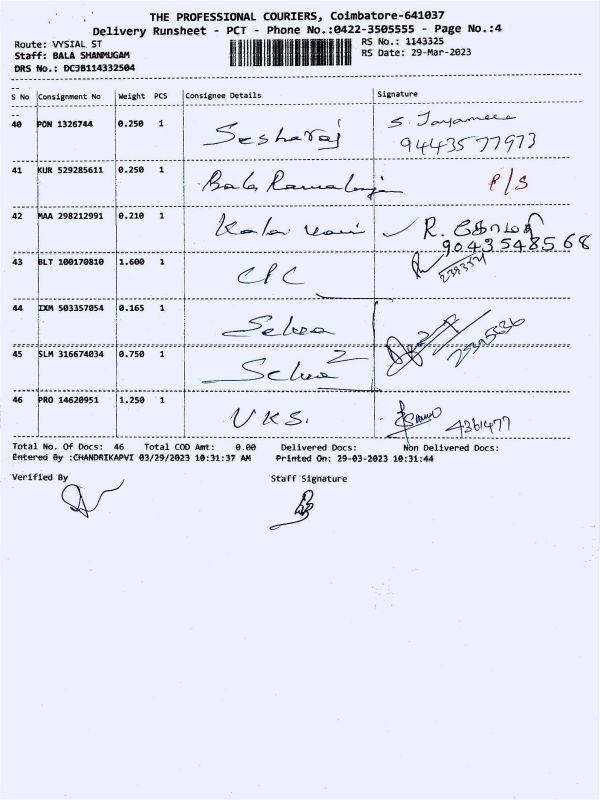 THE PROFESSIONAL COURIERS, Coimbatore-641037
Delivery Runsheet - PCT - Phone No.:0422-3505555 - Page No.:4
Route: VYSIAL ST RS No.: 1143325
Staff: BALA SHANMUGAM RS Date: 29-Mar-2023
DRS No.: DCJB114332504
S No Consignment No Weight PCS Consignee Details Signature
40 PON 1326744 0.250 1 Sesharaj S.
9443577973
41 KUR 529285611 0.250 1 Bala Ramalingam P/S
42 MAA 298212991 0.210 1 Kala vani R. கோமதி
9043548568
43 BLT 100170810 1.600 1 CPC
44 IXM 503357054 0.165 1 Selva
45 SLM 316674034 0.750 1 Selva 2
46 PRO 14620951 1.250 1 VKS. 4361477
Total No. Of Docs: 46 Total COD Amt: 0.00 Delivered Docs: Non Delivered Docs:
Entered By :CHANDRIKAPVI 03/29/2023 10:31:37 AM Printed On: 29-03-2023 10:31:44
Verified By Staff Signature